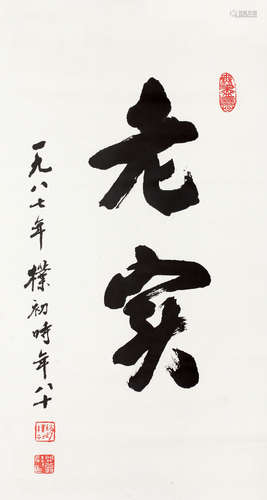 老实
一九八七年 樸初時年八十